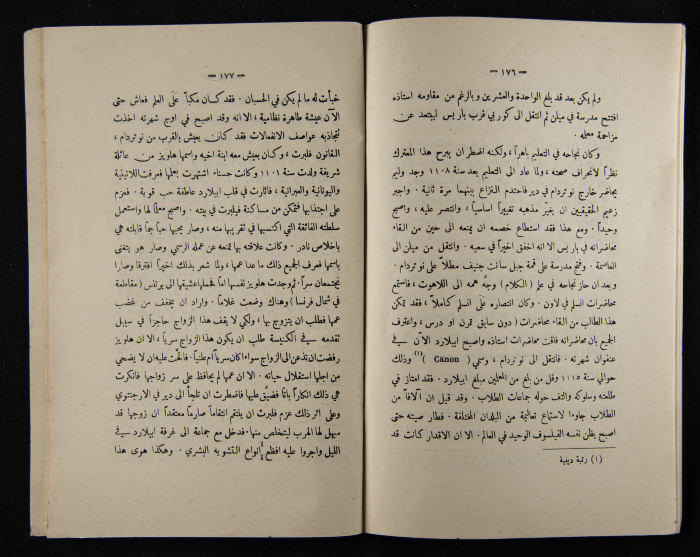 — ١٧٦ —
ولم يكن بعد قد بلغ الواحدة والعشرين وبالرغم من مقاومة استاذه
افتتح مدرسة في ميلن ثم انتقل الى كوربي قرب باريس ليبتعد عن
مزاحمة معلمه .
وكان نجاحه في التعليم باهراً ، ولكنه اضطر ان يبرح هذا المعترك
لانحراف صحته ، ولما عاد الى التعليم بعد سنة ١١٠٨ وجد وليم
يحاضر خارج نوتردام في دير فاحتدم النزاع بينهما مرة ثانية . واجبر
زعيم الحقيقيين ان يغير مذهبه تغييراً اساسياً ، وانتصر عليه ، واصبح
وحيداً . ومع هذا فقد استطاع خصمه ان يمنعه الى حين من القاء
محاضراته في باريس الا انه اخفق اخيراً في سعيه . وانتقل من ميلن الى
العاصمة . وفتح مدرسة على قمة جبل سانت جنيف مطلاً على نوتردام .
وبعد ان حاز نجاحه في علم ( الكلام ) وجّه همه الى اللاهوت ، فاستمع
محاضرات انسلم في لاون . وكان انتصاره على انسلم كاملاً ، فقد تمكن
هذا الطالب من القاء محاضرات ( دون سابق تمرن او درس ، واعترف
الجميع بان محاضراته فاقت محاضرات استاذه واصبح ابيلارد الآن في
عنفوان شهرته . فانتقل الى نوتردام ، وسمي ( Canon )(١) وذلك
حوالي سنة ١١١٥ وقل من بلغ من المعلمين مبلغ ابيلارد . فقد امتاز في
طلعته وسلوكه والتف حوله جماعات الطلاب . وقد قيل ان آلافاً من
الطلاب جاءوا لاستماع تعاليمه من البلدان المختلفة . فطار صيته حتى
اصبح يظن نفسه الفيلسوف الوحيد في العالم . الا ان الاقدار كانت قد
(١) رتبة دينية
— ١٧٧ —
خبأت له ما لم يكن في الحسبان . فقد كان مكباً على العلم فعاش حتى
الآن عيشة طاهرة نظامية ، الا انه وقد اصبح في اوج شهرته اخذت
تتجاذبه عواصف الانفعالات فقد كان يعيش بالقرب من نوتردام ،
القانون فلبرت ، وكان يعيش معه ابنة اخيه واسمها هلويز من عائلة
شريفة ولدت سنة ١١٠١ وكانت حسناء اشتهرت بعلمها فعرفت اللاتينية
واليونانية والعبرانية ، فاثارت في قلب ابيلارد عاطفة حب قوية . فعزم
على اجتذابها فتمكن من مساكنة فيلبرت في بيته . واصبح معلماً لها واستعمل
سلطته الفائقة التي اكتسبها في تقربه منه ، وصار يحبها حباً جماً قابلته هي
باخلاص نادر . وكانت علاقته بها تمنعه عن عمله الرسمي وصار هو يتغنى
باسمها فعرف الجميع ذلك ما عدا عمها ، ولما شعر بذلك اخيراً افترقا وصارا
يجتمعان سراً . ثم وجدت هلويز نفسها اماً فحملها عشيقها الى برتنس ( مقاطعة
في شمال فرنسا ) وهناك وضعت غلاماً . واراد ان يخفف من غضب
عمها فطلب ان يتزوج بها ، ولكي لا يقف هذا الزواج حاجزاً في سبيل
تقدمه في الكنيسة طلب ان يكون هذا الزواج سرياً ، الا ان هلويز
رفضت ان تذعن الى الزواج سواء اكان سرياً ام علنياً . فالحّت عليه ان لا يضحي
من اجلها استقلال حياته . الا ان عمها لم يحافظ على سر زواجها فانكرت
هي ذلك انكاراً باتاً فضيّق عليها فاضطرت ان تلجأ الى دير في الارجنتوي
وعلى اثر ذلك عزم فلبرت ان ينتقم انتقاماً صارماً معتقداً ان زوجها قد
سهل لها الهرب ليتخلص منها . فدخل مع جماعة الى غرفة ابيلارد في
الليل واجروا عليه افظع انواع التشويه البشري . وهكذا هوى هذا